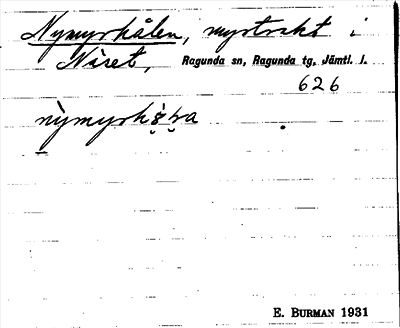 Nymyrhålen, myrtrakt i
Näset, Ragunda sn, Ragunda tg, Jämtl. l.
626
E. BURMAN 1931